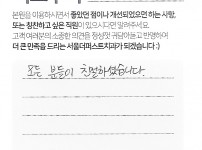 본원을 이용하시면서 좋았던 점이나 개선되었으면 하는 사항,
또는 칭찬하고 싶은 직원이 있으시다면 알려주세요.
고객 여러분의 소중한 의견을 정성껏 귀담아듣고 반영하여
더 큰 만족을 드리는 서울더퍼스트치과가 되겠습니다 :)
모든 분들이 친절하셨습니다.